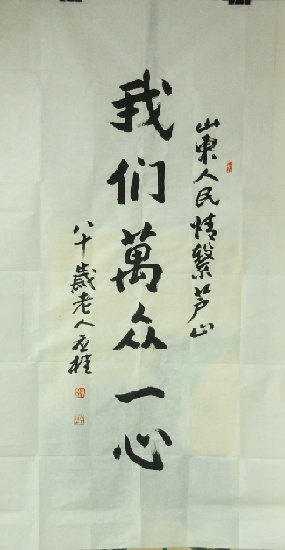 山東人民情繫芦山
我们萬众一心
八十歲老人丕桂